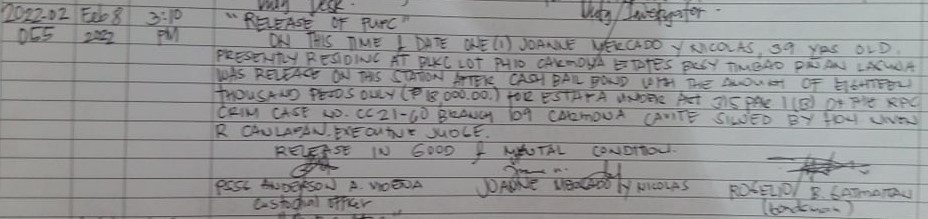 Duty Desk. Duty/Investigator.
2022-02 Feb 8 3:10 "RELEASE OF PUPC"
055 2022 PM ON THIS TIME & DATE ONE (1) JOANNE MERCADO Y NICOLAS, 39 YRS OLD.
PRESENTLY RESIDING AT BLKC LOT PH10 CARMONA ESTATES BRGY TIMBAO BIÑAN LAGUNA
WAS RELEASE ON THIS STATION AFTER CASH BAIL BOND WITH THE AMOUNT OF EIGHTEEN
THOUSAND PESOS ONLY (₱18,000.00.) FOR ESTAFA UNDER ART 315 PAR 1(B) OF THE RPC
CRIM CASE NO. CC21-60 BRANCH 109 CARMONA CAVITE SIGNED BY HON
R CANLAPAN. EXECUTIVE JUDGE.
RELEASE IN GOOD & MENTAL CONDITION.
PSSG ANDERSON A. JOANNE MERCADO Y NICOLAS ROGELIO B. GATMAITAN
Custodial Officer (bondsman)